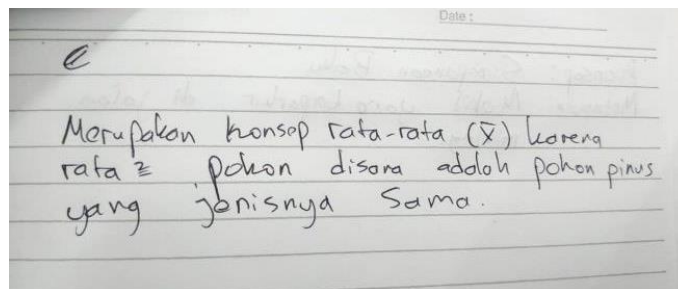 Date :
e
Merupakan konsep rata-rata (x̄) karena
rata 2 pohon disana adalah pohon pinus
yang jenisnya sama.